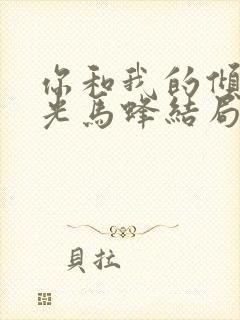 你和我的傾
光馬蜂結局
貝拉